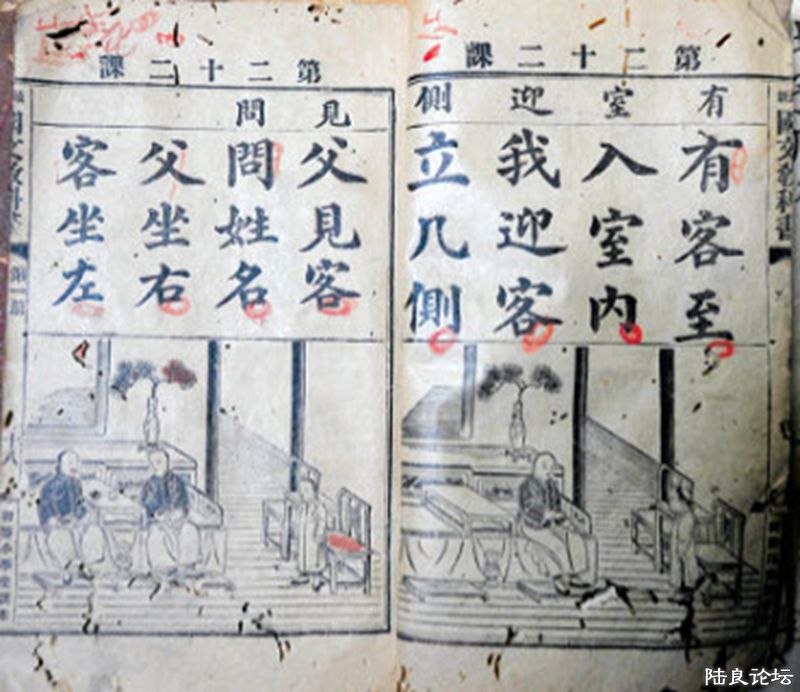 第二十二課
有 室 迎 側
有客至
入室内
我迎客
立几側
國文教科書
第二十二課
見 問
父見客
問姓名
父坐右
客坐左
陆良论坛